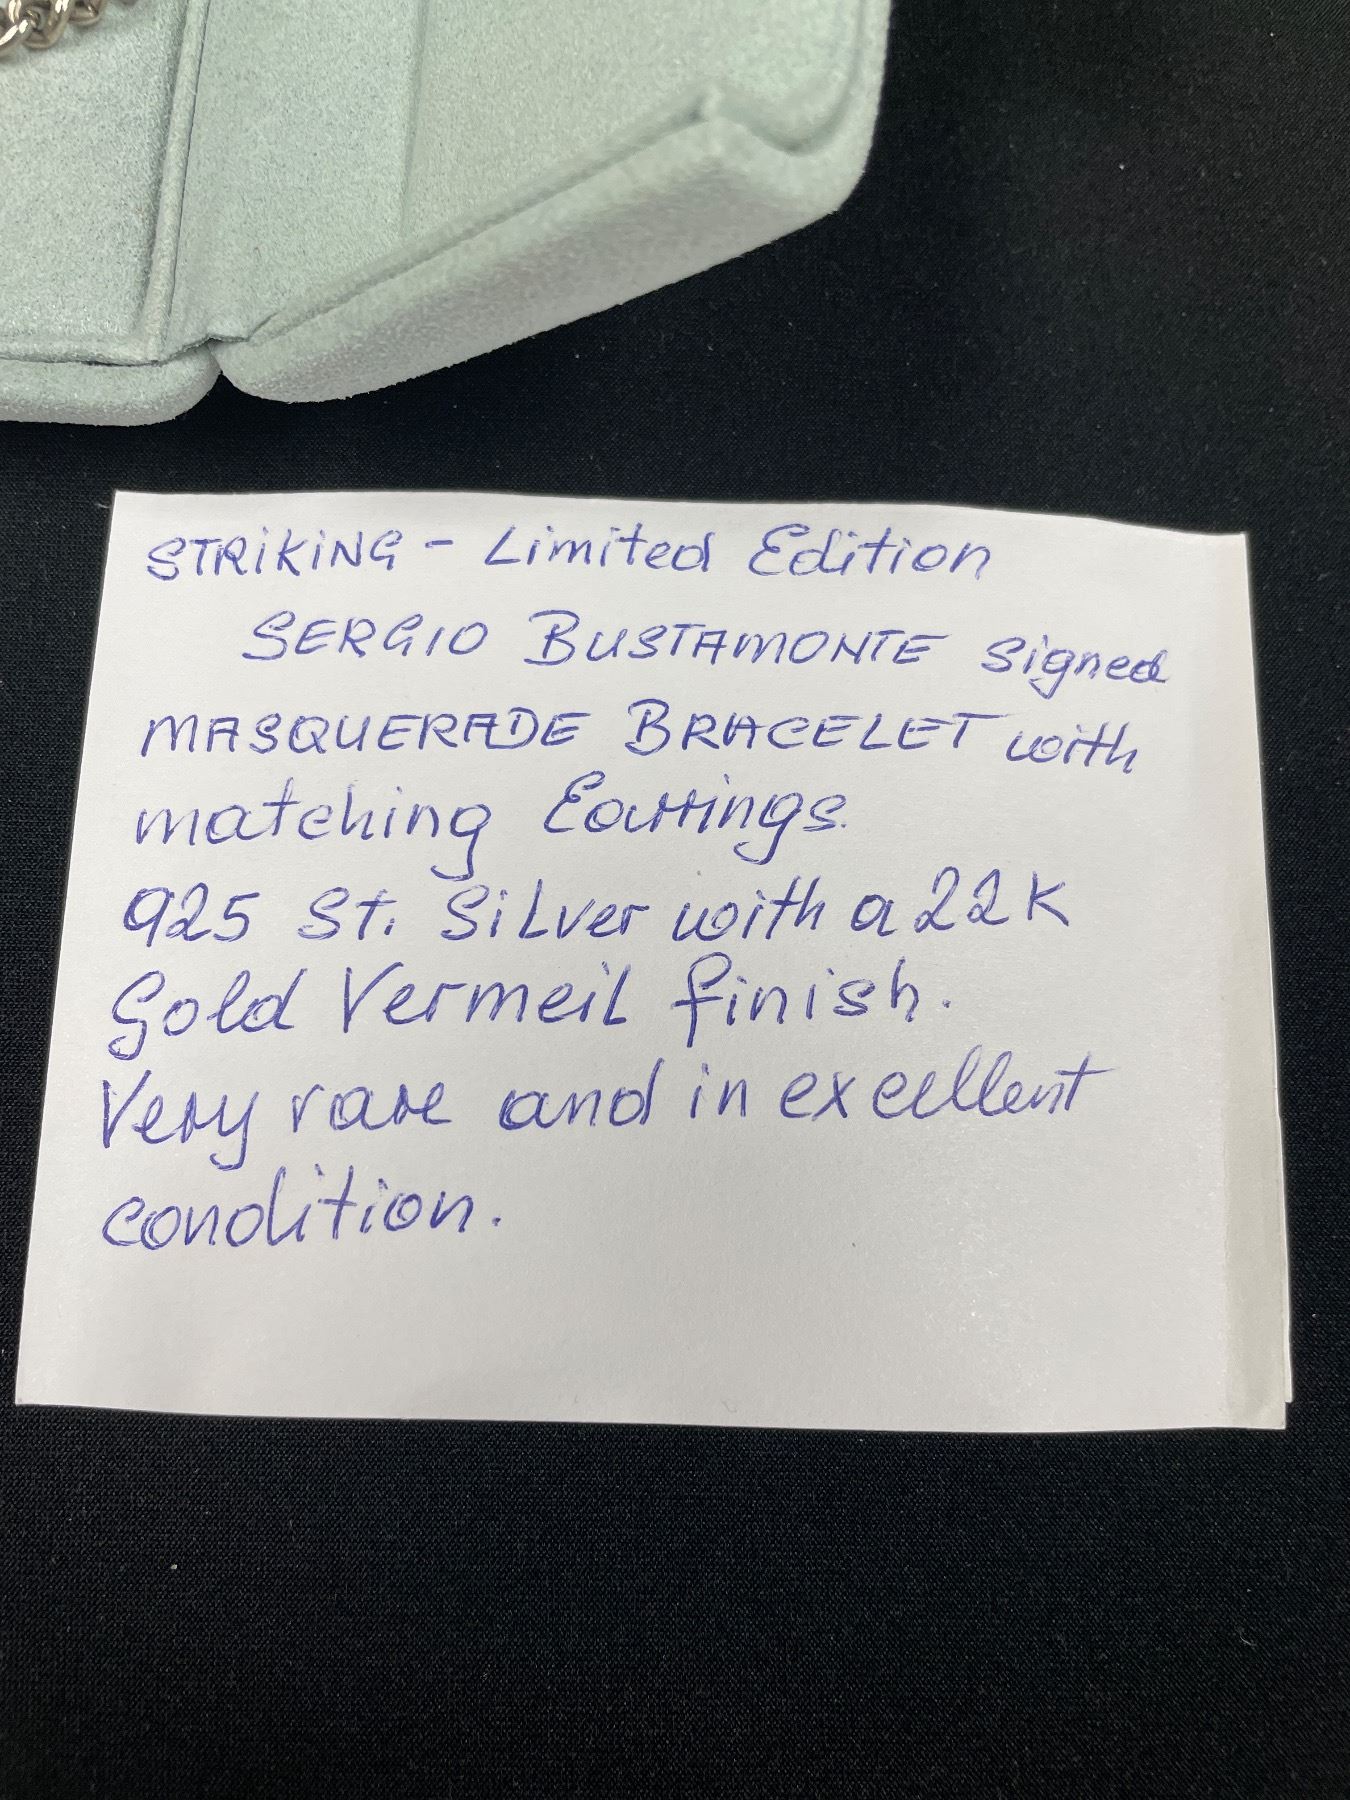 STRIKING - Limited Edition
SERGIO BUSTAMONTE signed
MASQUERADE BRACELET with
matching Earrings.
925 St. Silver with a 22K
Gold Vermeil finish.
Very rare and in excellent
condition.